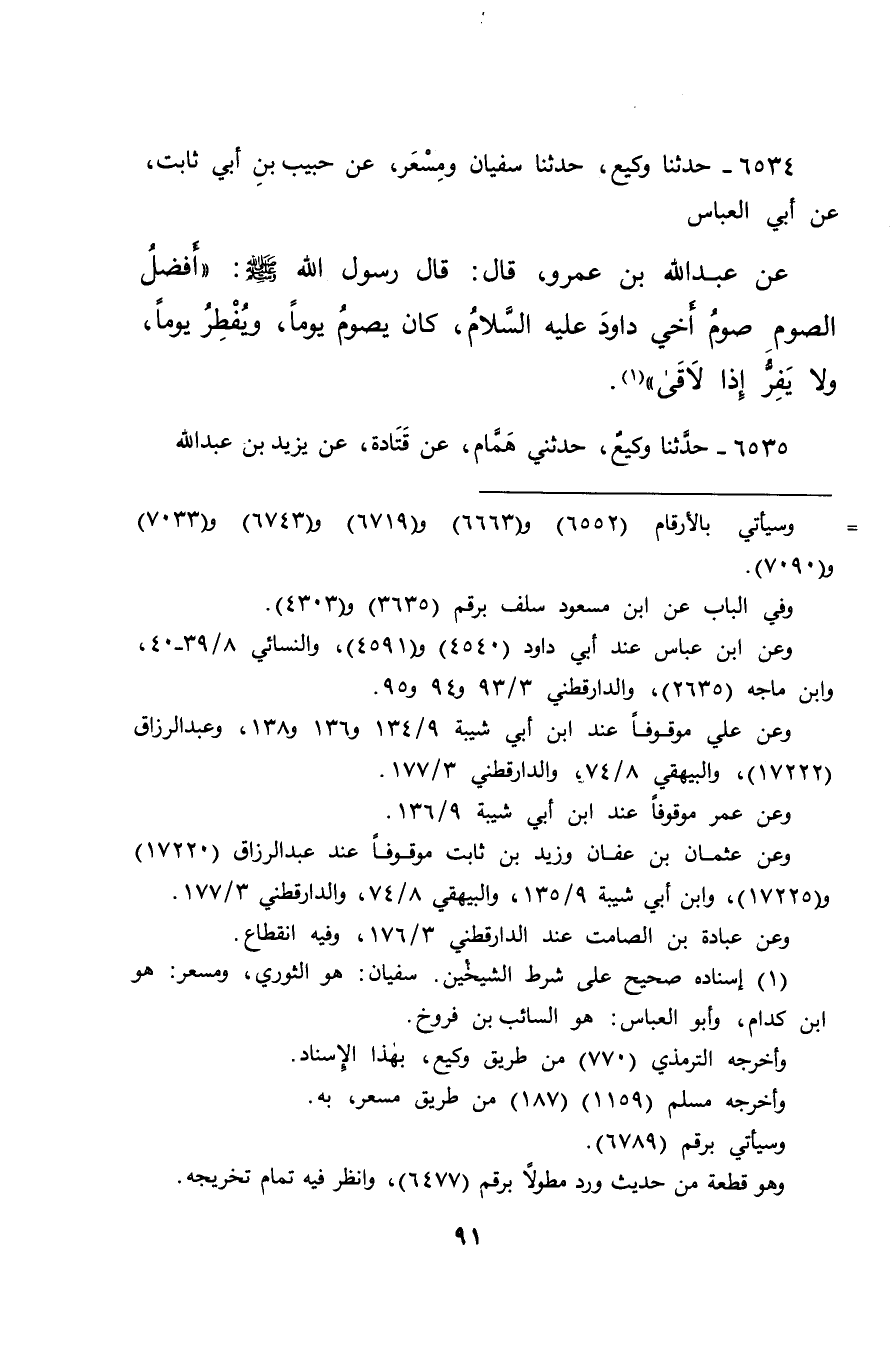 ٦٥٣٤ ـ حدثنا وكيع، حدثنا سفيان ومِسْعَر، عن حبيب بنِ أبي ثابت،
عن أبي العباس
عن عبدالله بن عمرو، قال: قال رسول الله ﷺ: «أَفضلُ
الصومِ صومُ أَخي داودَ عليه السَّلامُ، كان يصومُ يوماً، ويُفْطِرُ يوماً،
ولا يَفِرُّ إِذا لَاقَىٰ»(١).
٦٥٣٥ ـ حدَّثنا وكيعٌ، حدثني هَمَّام، عن قَتَادة، عن يزيد بن عبدالله
= وسيأتي بالأرقام (٦٥٥٢) و(٦٦٦٣) و(٦٧١٩) و(٦٧٤٣) و(٧٠٣٣)
و(٧٠٩٠).
وفي الباب عن ابن مسعود سلف برقم (٣٦٣٥) و(٤٣٠٣).
وعن ابن عباس عند أبي داود (٤٥٤٠) و(٤٥٩١)، والنسائي ٣٩/٨ـ٤٠،
وابن ماجه (٢٦٣٥)، والدارقطني ٩٣/٣ و٩٤ و٩٥.
وعن علي موقوفاً عند ابن أبي شيبة ١٣٤/٩ و١٣٦ و١٣٨، وعبدالرزاق
(١٧٢٢٢)، والبيهقي ٧٤/٨، والدارقطني ١٧٧/٣.
وعن عمر موقوفاً عند ابن أبي شيبة ١٣٦/٩.
وعن عثمان بن عفان وزيد بن ثابت موقوفاً عند عبدالرزاق (١٧٢٢٠)
و(١٧٢٢٥)، وابن أبي شيبة ١٣٥/٩، والبيهقي ٧٤/٨، والدارقطني ١٧٧/٣.
وعن عبادة بن الصامت عند الدارقطني ١٧٦/٣، وفيه انقطاع.
(١) إسناده صحيح على شرط الشيخين. سفيان: هو الثوري، ومسعر: هو
ابن كدام، وأبو العباس: هو السائب بن فروخ.
وأخرجه الترمذي (٧٧٠) من طريق وكيع، بهٰذا الإِسناد.
وأخرجه مسلم (١١٥٩) (١٨٧) من طريق مسعر، به.
وسيأتي برقم (٦٧٨٩).
وهو قطعة من حديث ورد مطولاً برقم (٦٤٧٧)، وانظر فيه تمام تخريجه.
٩١